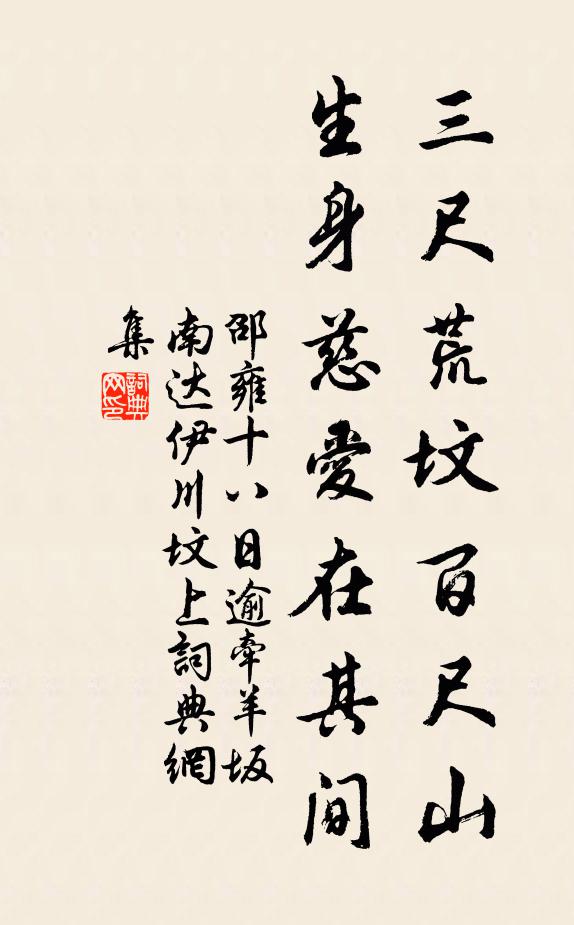 三尺荒坟百尺山
生身慈愛在其间
邵雍十八日逾牵羊坂
南达伊川坟上詞典網
集
詞典
网印